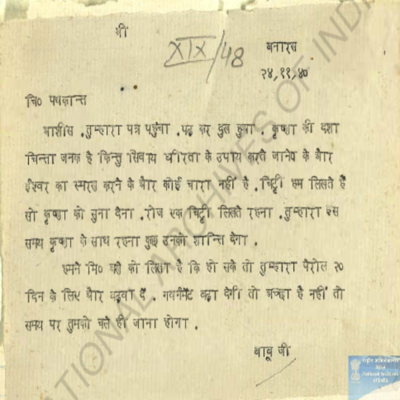 श्री
XIX/48
बनारस
२४,११,४०
चि० पद्मकान्त
आशीस . तुम्हारा पत्र पहुंचा . पढ़ कर दुख हुआ . कृष्णा की दशा
चिन्ता जनक है किन्तु सिवाय धीरता के उपाय करते जानेके और
ईश्वर का स्मरण करने के और कोई चारा नहीं है . चिट्ठी हम लिखते हैं
सो कृष्णा को सुना देना . रोज एक चिट्ठी लिखते रहना . तुम्हारा इस
समय कृष्णा के साथ रहना कुछ उनको शान्ति देगा .
हमने मि० को लिखा है कि हो सके तो तुम्हारा पैरोल २०
दिन के लिए और बढ़वा दें . गवर्नमेंट बढ़ा देगी तो अच्छा है नहीं तो
समय पर तुमको चले ही जाना होगा .
बाबू जी
NATIONAL ARCHIVES OF INDIA